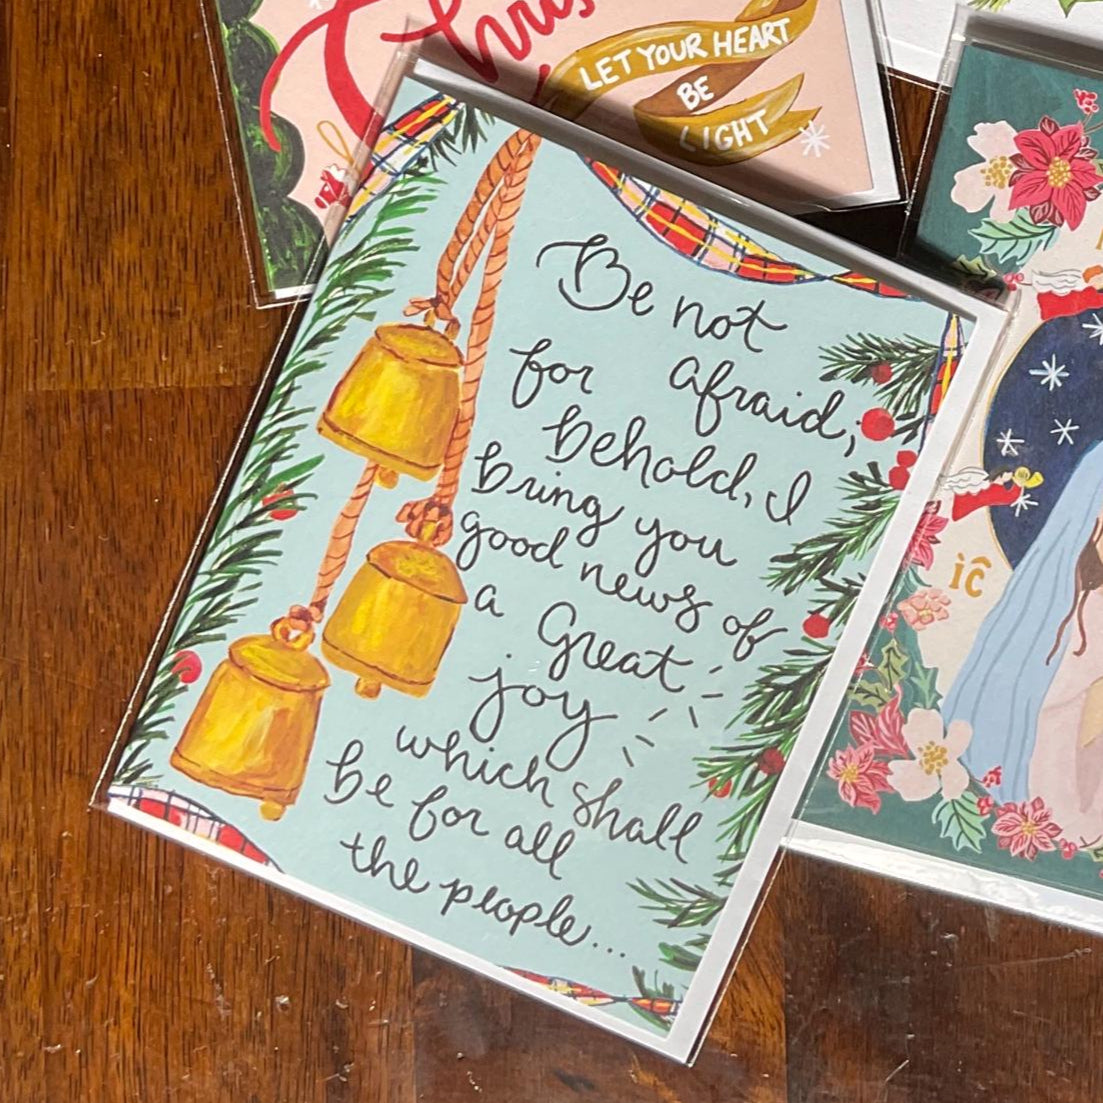 LET YOUR HEART
BE
LIGHT
Be not
afraid;
for
behold, I
bring you
good news of
a Great
joy
which shall
be for all
the people...